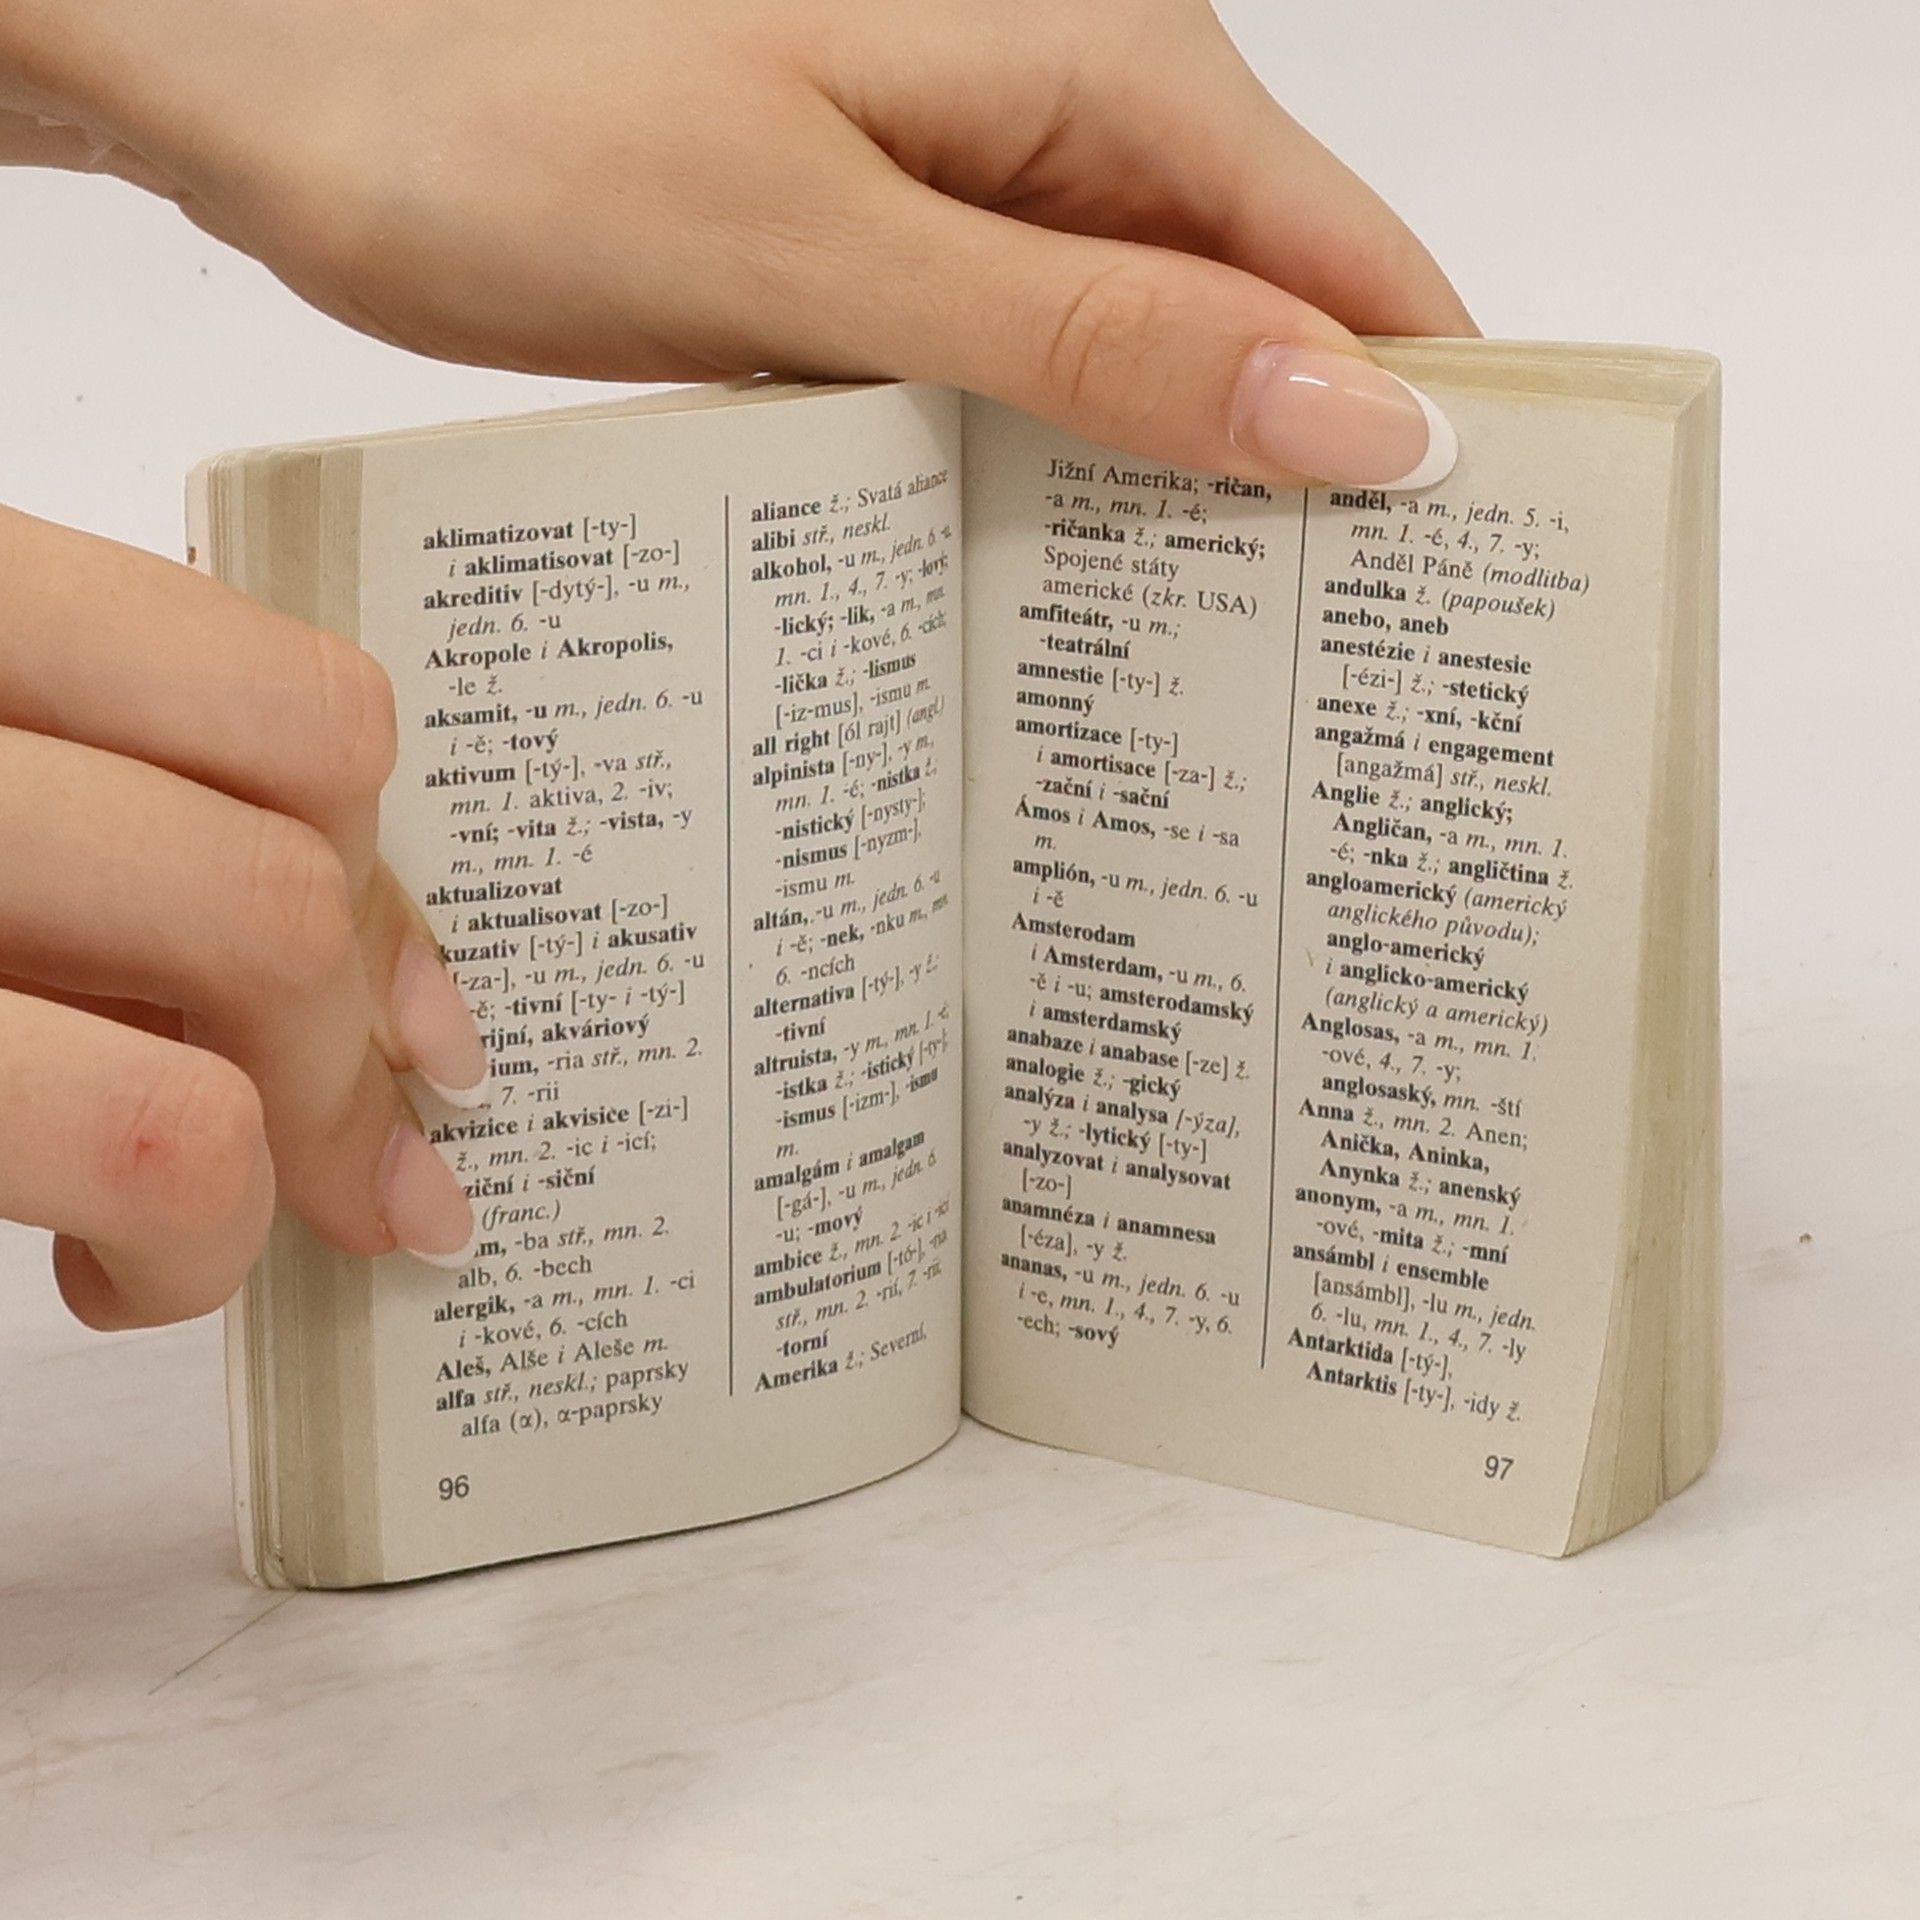 aklimatizovat [-ty-]
i aklimatisovat [-zo-]
akreditiv [-dytý-], -u m.,
jedn. 6. -u
Akropole i Akropolis,
-le ž.
aksamit, -u m., jedn. 6. -u
i -ě; -tový
aktivum [-tý-], -va stř.,
mn. 1. aktiva, 2. -iv;
-vní; -vita ž.; -vista, -y
m., mn. 1. -é
aktualizovat
i aktualisovat [-zo-]
kuzativ [-tý-] i akusativ
[-za-], -u m., jedn. 6. -u
-ě; -tivní [-ty- i -tý-]
rijní, akváriový
ium, -ria stř., mn. 2.
7. -rii
akvizice i akvisice [-zi-]
ž., mn. 2. -ic i -icí;
ziční i -siční
(franc.)
m, -ba stř., mn. 2.
alb, 6. -bech
alergik, -a m., mn. 1. -ci
i -kové, 6. -cích
Aleš, Alše i Aleše m.
alfa stř., neskl.; paprsky
alfa (α), α-paprsky
96
aliance ž.; Svatá aliance
alibi stř., neskl.
alkohol, -u m., jedn. 6. -u,
mn. 1., 4., 7. -y; -lový;
-lický; -lik, -a m., mn.
1. -ci i -kové, 6. -cích;
-lička ž.; -lismus
[-iz-mus], -ismu m.
all right [ól rajt] (angl.)
alpinista [-ny-], -y m.,
mn. 1. -é; -nistka ž.;
-nistický [-nysty-];
-nismus [-nyzm-],
-ismu m.
altán, -u m., jedn. 6. -u
i -ě; -nek, -nku m., mn.
6. -ncích
alternativa [-tý-], -y ž.;
-tivní
altruista, -y m., mn. 1. -é;
-istka ž.; -istický [-ty-];
-ismus [-izm-], -ismu
m.
amalgám i amalgam
[-gá-], -u m., jedn. 6.
-u; -mový
ambice ž., mn. 2. -ic i -icí
ambulatorium [-tó-], -ria
stř., mn. 2. -rií, 7. -rii;
-torní
Amerika ž.; Severní,
Jižní Amerika; -ričan,
-a m., mn. 1. -é;
-ričanka ž.; americký;
Spojené státy
americké (zkr. USA)
amfiteátr, -u m.;
-teatrální
amnestie [-ty-] ž.
amonný
amortizace [-ty-]
i amortisace [-za-] ž.;
-zační i -sační
Ámos i Amos, -se i -sa
m.
amplión, -u m., jedn. 6. -u
i -ě
Amsterodam
i Amsterdam, -u m., 6.
-ě i -u; amsterodamský
i amsterdamský
anabaze i anabase [-ze] ž.
analogie ž.; -gický
analýza i analysa [-ýza],
-y ž.; -lytický [-ty-]
analyzovat i analysovat
[-zo-]
anamnéza i anamnesa
[-éza], -y ž.
ananas, -u m., jedn. 6. -u
i -e, mn. 1., 4., 7. -y, 6.
-ech; -sový
anděl, -a m., jedn. 5. -i,
mn. 1. -é, 4., 7. -y;
Anděl Páně (modlitba)
andulka ž. (papoušek)
anebo, aneb
anestézie i anestesie
[-ézi-] ž.; -stetický
anexe ž.; -xní, -kční
angažmá i engagement
[angažmá] stř., neskl.
Anglie ž.; anglický;
Angličan, -a m., mn. 1.
-é; -nka ž.; angličtina ž.
angloamerický (americký
anglického původu);
anglo-americký
i anglicko-americký
(anglický a americký)
Anglosas, -a m., mn. 1.
-ové, 4., 7. -y;
anglosaský, mn. -ští
Anna ž., mn. 2. Anen;
Anička, Aninka,
Anynka ž.; anenský
anonym, -a m., mn. 1.
-ové, -mita ž.; -mní
ansámbl i ensemble
[ansámbl], -lu m., jedn.
6. -lu, mn. 1., 4., 7. -ly
Antarktida [-tý-],
Antarktis [-ty-], -idy ž.
97